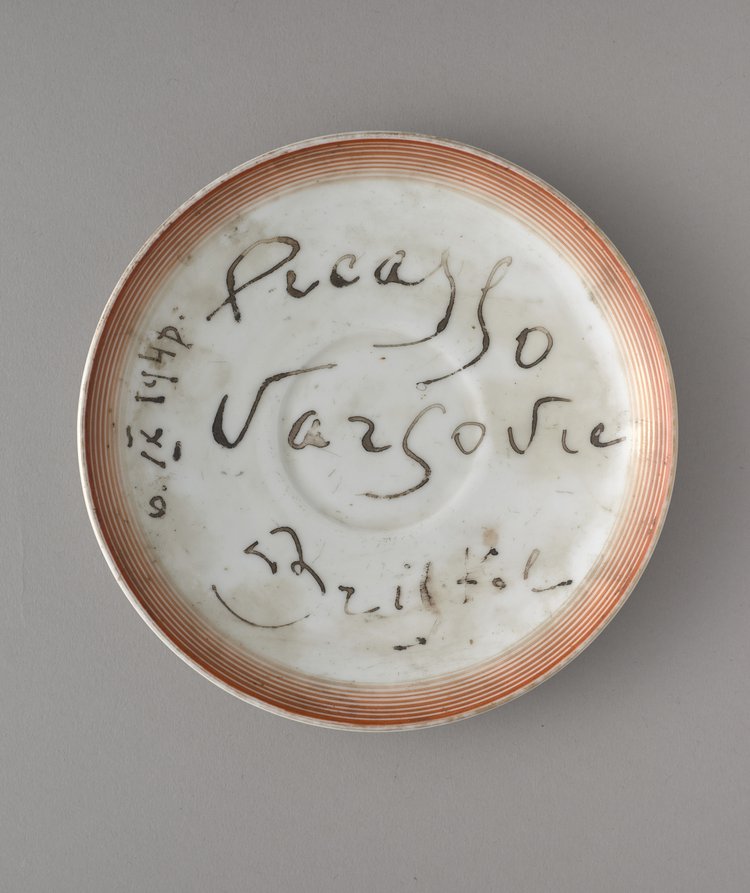 Picasso
Varsovie
Bristol
6. IX 1948.